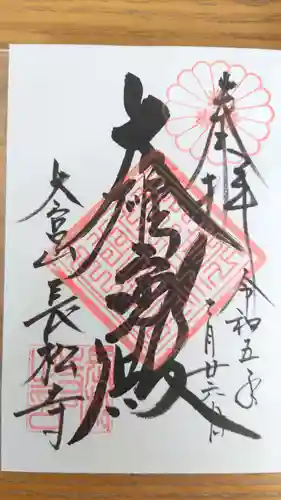 奉拝
令和五年
月廿六日
大雄寳殿
大宮山
長松寺